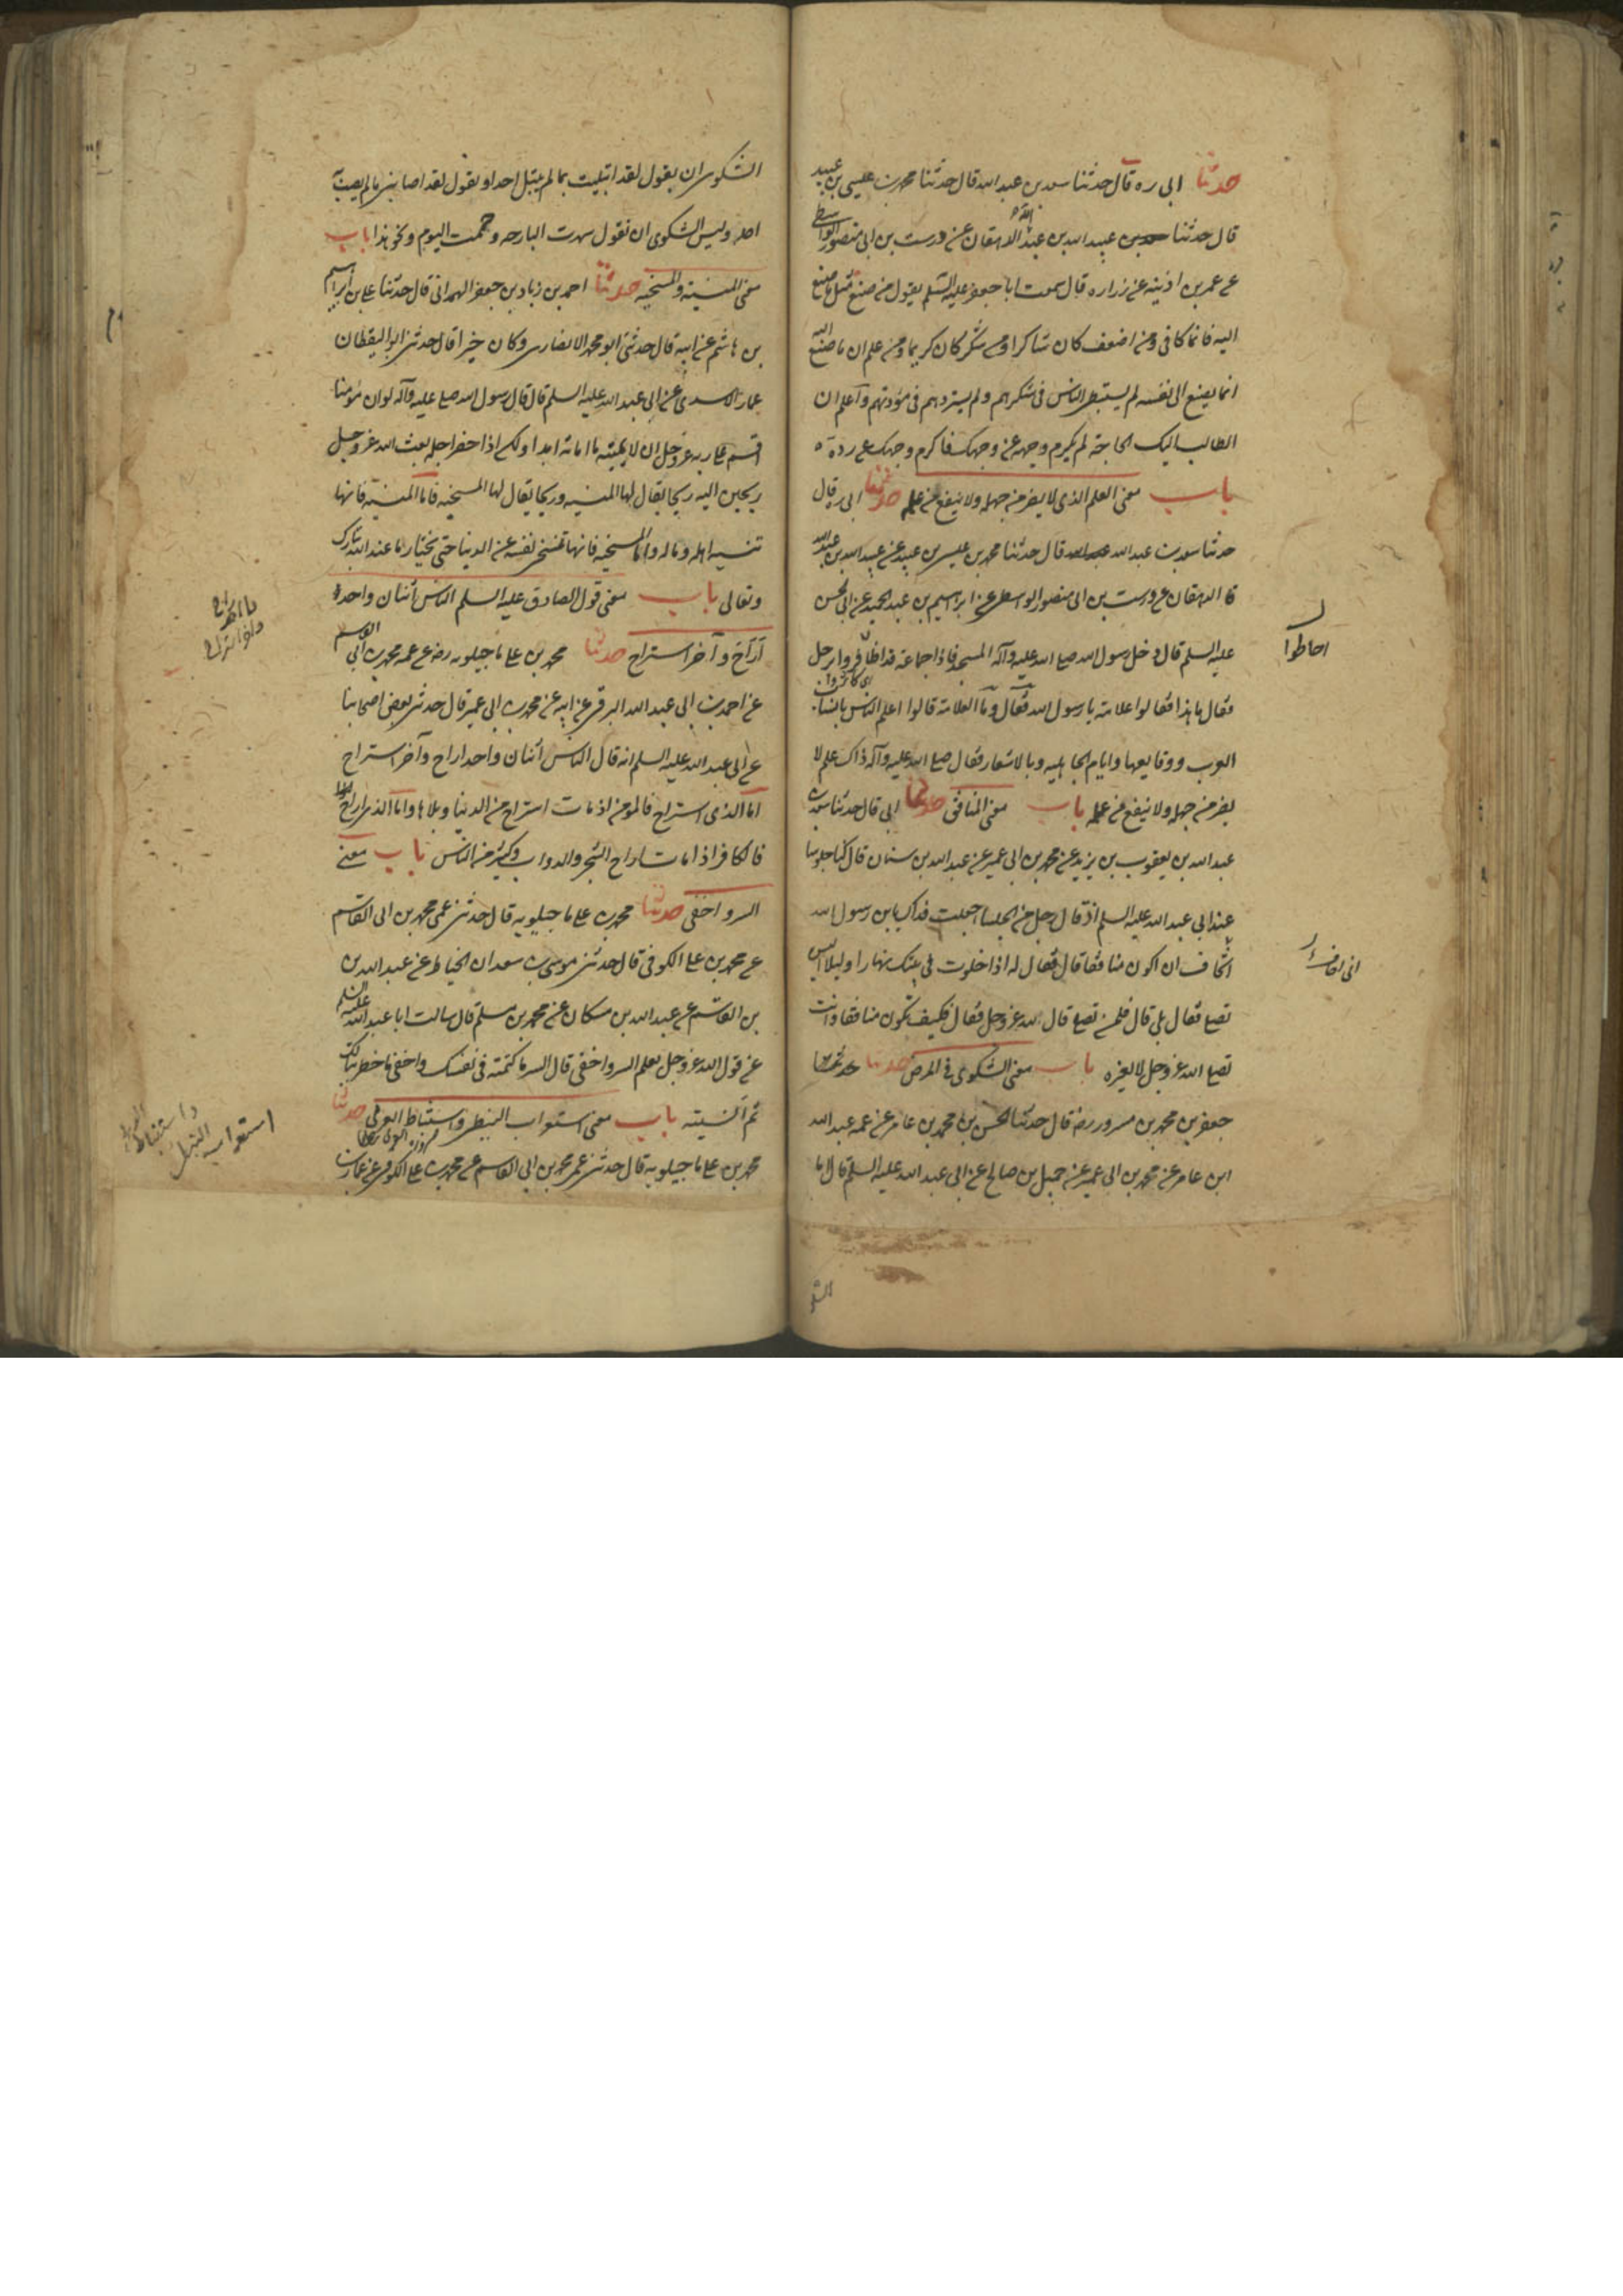 حدثنا ابى ره قال حدثنا سعد بن عبد الله قال حدثنا محمد بن عيسى بن عبيد
قال حدثنا عبيد الله بن عبد الله الدهقان عن درست بن ابى منصور الواسطى
عن عمر بن اذينه عن زراره قال سمعت ابا جعفر عليه السلم يقول من صنع مثل ما صنع
اليه فانما كافى ومن اضعف كان شاكرا ومن شكر كان كريما ومن علم ان ما صنع
انما يصنع الى نفسه لم يستبطئ الناس فى شكرهم ولم يستزدهم فى مودتهم واعلم ان
الطالب اليك الحاجة لم يكرم وجهه عن وجهك فاكرم وجهك عن رده
باب معنى العلم الذى لا يضر من جهله ولا ينفع من علمه حدثنا ابى ره قال
حدثنا سعد بن عبد الله قال حدثنا محمد بن عيسى بن عبيد عن عبيد الله بن عبد الله
الدهقان عن درست بن ابى منصور الواسطى عن ابراهيم بن عبد الحميد عن ابى الحسن
عليه السلم قال دخل رسول الله صلى الله عليه وآله المسجد فاذا جماعة قد اطافوا برجل
فقال ما هذا فقالوا علامة يا رسول الله فقال وما العلامة قالوا اعلم الناس بانساب
العرب ووقايعها وايام الجاهلية وبالاشعار فقال صلى الله عليه وآله ذاك علم لا
يضر من جهله ولا ينفع من علمه باب معنى المنافق حدثنا ابى قال حدثنا سعد بن
عبد الله بن يعقوب بن يزيد عن محمد بن ابى عمير عن عبد الله بن سنان قال كنا جلوسا
عند ابى عبد الله عليه السلم اذ قال رجل من الجلسا جعلت فداك يابن رسول الله
اخاف ان اكون منافقا قال فقال له اذا خلوت فى بيتك نهارا وليلا اليس
تصلى فقال بلى قال فلمن تصلى قال لله عز وجل فقال فكيف تكون منافقا وانت
تصلى الله عز وجل لا لغيره باب معنى الشكوى فى المرض حدثنا
جعفر بن محمد بن مسرور رضه قال حدثنا الحسين بن محمد بن عامر عن عمه عبد الله
ابن عامر عن محمد بن ابى عمير عن جميل بن صالح عن ابى عبد الله عليه السلم قال انما
احاطوا
الشكوى ان يقول لقد ابتليت بما لم يبتل احد او يقول لقد اصابنى ما لم يصب
احد وليس الشكوى ان تقول سهرت البارحه وحممت اليوم ونحو هذا باب
معنى المنسية والمسخيه حدثنا احمد بن زياد بن جعفر الهمدانى قال حدثنا على بن ابراهيم
بن هاشم عن ابيه قال حدثنى ابو محمد الانصارى وكان خيرا قال حدثنى ابو اليقظان
عمار الاسدى عن ابى عبد الله عليه السلم قال قال رسول الله صلى عليه وآله لو ان مؤمنا
اقسم على ربه عز وجل ان لا يميته ما اماته ابدا ولكن اذا حضر اجله بعث الله عز وجل
ريحين اليه ريحا يقال لها المنسيه وريحا يقال لها المسخيه فاما المنسية فانها
تنسيه اهله وماله واما المسخيه فانها تسخى نفسه عن الدنيا حتى يختار ما عند الله تبارك
وتعالى باب معنى قول الصادق عليه السلم الناس اثنان واحد
اراح وآخر استراح حدثنا محمد بن على ماجيلويه رضه عن عمه محمد بن ابى القاسم
عن احمد بن ابى عبد الله البرقى عن ابيه عن محمد بن ابى عمير قال حدثنى بعض اصحابنا
عن ابى عبد الله عليه السلم انه قال الناس اثنان واحد اراح وآخر استراح
اما الذى استراح فالمومن اذ مات استراح من الدنيا وبلاها واما الذى اراح
فالكافر اذا مات اراح الشجر والدواب وكثير من الناس باب معنى
السر واخفى حدثنا محمد بن على ماجيلويه قال حدثنى عمى محمد بن ابى القاسم
عن محمد بن على الكوفى قال حدثنى موسى بن سعدان الحناط عن عبد الله بن
بن القاسم عن عبد الله بن مسكان عن محمد بن مسلم قال سالت ابا عبد الله عليه السلم
عن قول الله عز وجل يعلم السر واخفى قال السر ما كتمته فى نفسك واخفى ما خطر ببالك
ثم انسيته باب معنى استعراب النبط واستنباط العرب حدثنا
محمد بن على ماجيلويه قال حدثنى عمى محمد بن ابى القاسم عن محمد بن على الكوفى عن